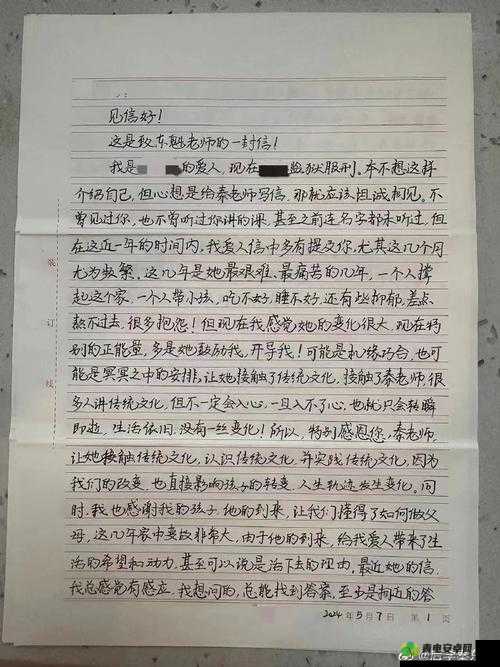 见信好！
这是致东魁老师的一封信！
我是 的爱人，现在 监狱服刑。本不想这样
介绍自己，但心想是给秦老师写信，那就应该坦诚相见。不
曾见过你，也不曾听过你讲的课，甚至之前连名字都未听过，但
在这近一年的时间内，我爱人信中多有提及你，尤其这几个月
尤为频繁，这几年是她最艰难、最痛苦的几年，一个人撑
起这个家，一个人带小孩，吃不好，睡不好，还有些抑郁，差点
熬不过去，很多抱怨！但现在我感觉她的变化很大，现在特
别的正能量，多是她鼓励我，开导我！可能是机缘巧合，也可
能是冥冥之中的安排，让她接触了传统文化，接触了秦老师，很
多人讲传统文化，但不一定会入心，一旦入不了心，也就只会转瞬
即逝，生活依旧，没有一丝变化！所以，特别感恩你，秦老师，
让她接触传统文化，认识传统文化，并实践传统文化，因为
我们的改变，也直接影响孩子的转变，人生轨迹发生变化。同
时，我也感谢我的孩子，她的到来，让我们懂得了如何做父
母，这几年家中变故非常大，由于她的到来，给我爱人带来了生
活的希望和动力，甚至可以说是活下去的理由，最近她的信，
我总感觉有感应，我想问的，总能找到答案，至少是相近的答
2024年5月7日 第1页
装
订
线
青电安卓网